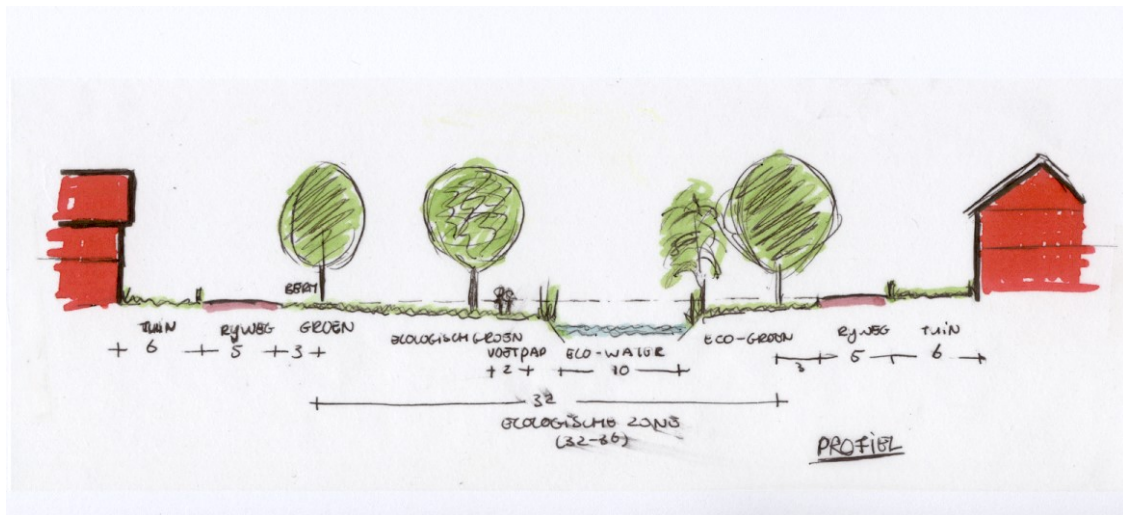 BERM
TUIN RIJWEG GROEN ECOLOGISCH GROEN ECO-GROEN RIJWEG TUIN
VOETPAD ECO-WATER
6 5 3 2 10 3 5 6
32
ECOLOGISCHE ZONE
(32-36)
PROFIEL